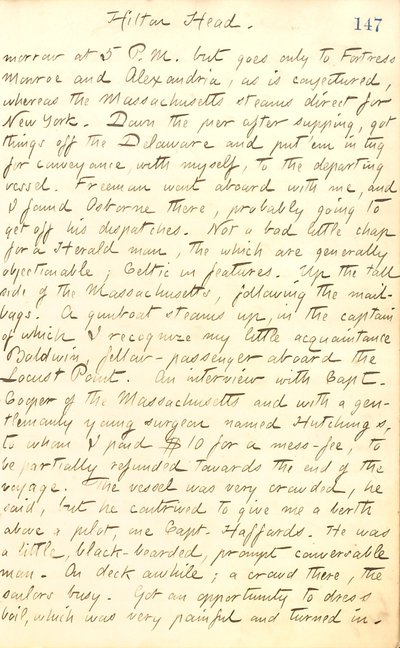 Hilton Head.
147
morrow at 5 P.M. but goes only to Fortress
Monroe and Alexandria, as is conjectured,
whereas the Massachusetts steams direct for
New York. Down the pier after supping, got
things off the Delaware and put 'em in tug
for conveyance, with myself, to the departing
vessel. Freeman went aboard with me, and
I found Osborne there, probably going to
get off his dispatches. Not a bad little chap
for a Herald man, the which are generally
objectionable; Celtic in features. Up the tall
side of the Massachusetts, following the mail-
bags. A gunboat steams up, in the captain
of which I recognize my little acquaintance
Baldwin, fellow-passenger aboard the
Locust Point. An interview with Capt.
Cooper of the Massachusetts and with a gen-
tlemanly young surgeon named Hutchings,
to whom I paid $10 for a mess-fee, to
be partially refunded towards the end of the
voyage. The vessel was very crowded, he
said, but he contrived to give me a berth
above a pilot, one Capt. Haffards. He was
a little, black-bearded, prompt conversable
man. On deck awhile; a crowd there, the
sailors busy. Got an opportunity to dress
boil, which was very painful and turned in.